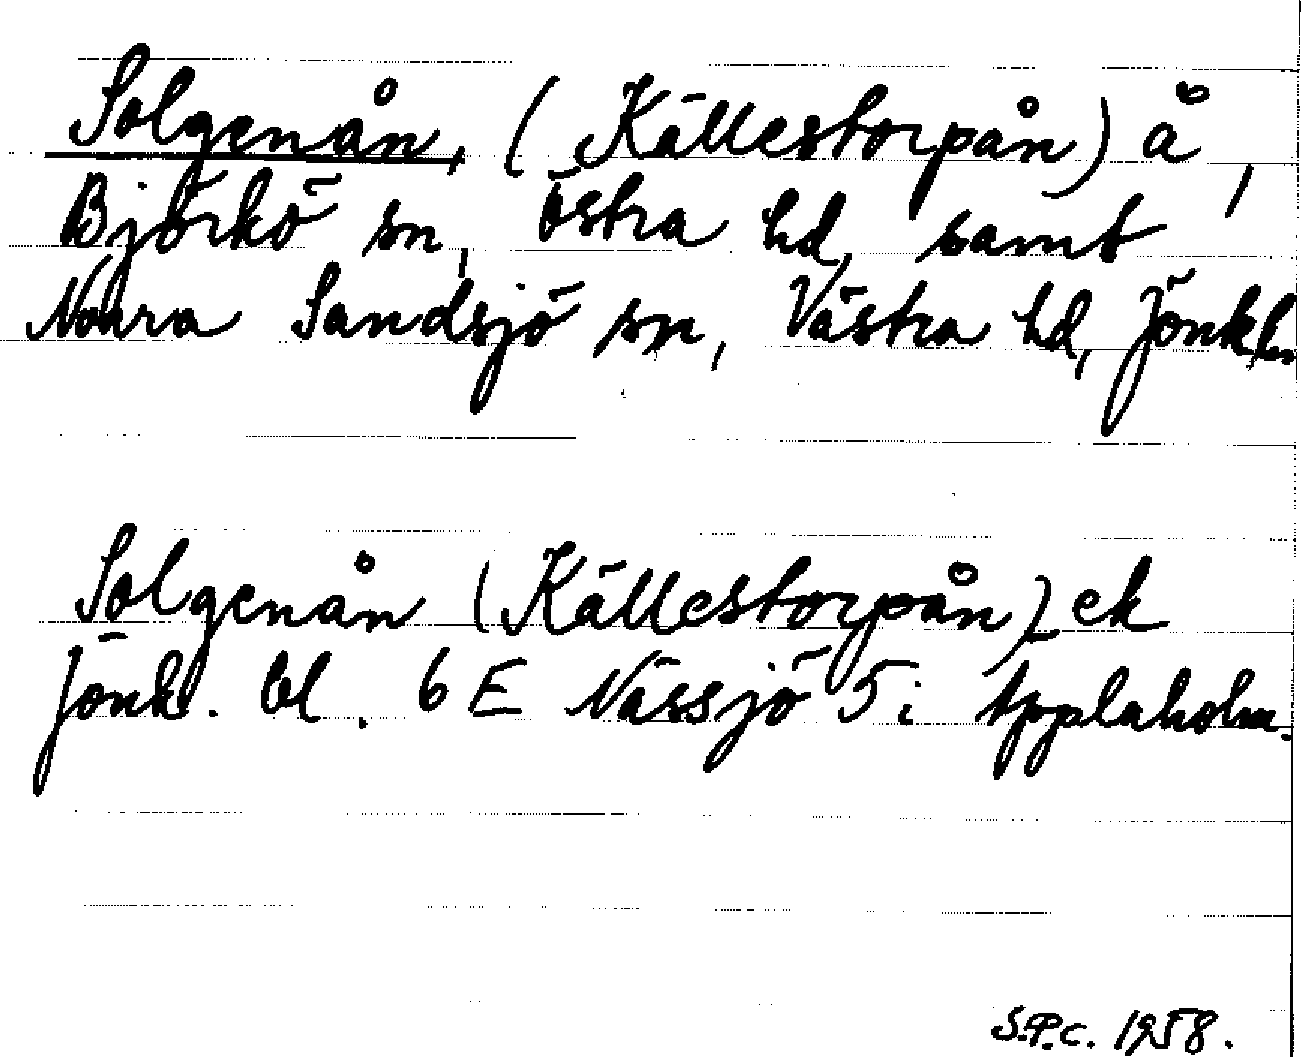 Solgenån, (Källestorpån) å,
Björkö sn, Östra hd, samt
Norra Sandsjö sn, Västra hd, Jönk.ln
Solgenån (Källestorpån) ek
Jönk. bl. 6 E Nässjö 5 i Äpplaholm.
S.P.c. 1958.